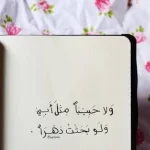 ولا حبيباً مثل أبي
ولو بحثتُ دهراً .